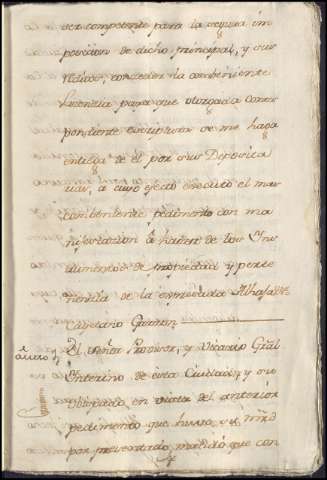 ser competente para la segura im
posicion de dicho principal, y sus
reditos, conceder la combeniente
Licencia para que otorgada corres
pondiente escriptura se me haga
entrega de el por su Deposita
rio, a cuyo efecto produsco el mas
combeniente pedimento con ma
nifestacion q hacen de los Ins
trumentos de propiedad y perte
nencia de la expresada Alhaja
Cayetano
Auto
El señor Provisor, y Vicario Gral
Interino de esta Ciudad, y su
Obispado, en vista del anterior
pedimento que huvo, su mrd
por presentado, mandó que con